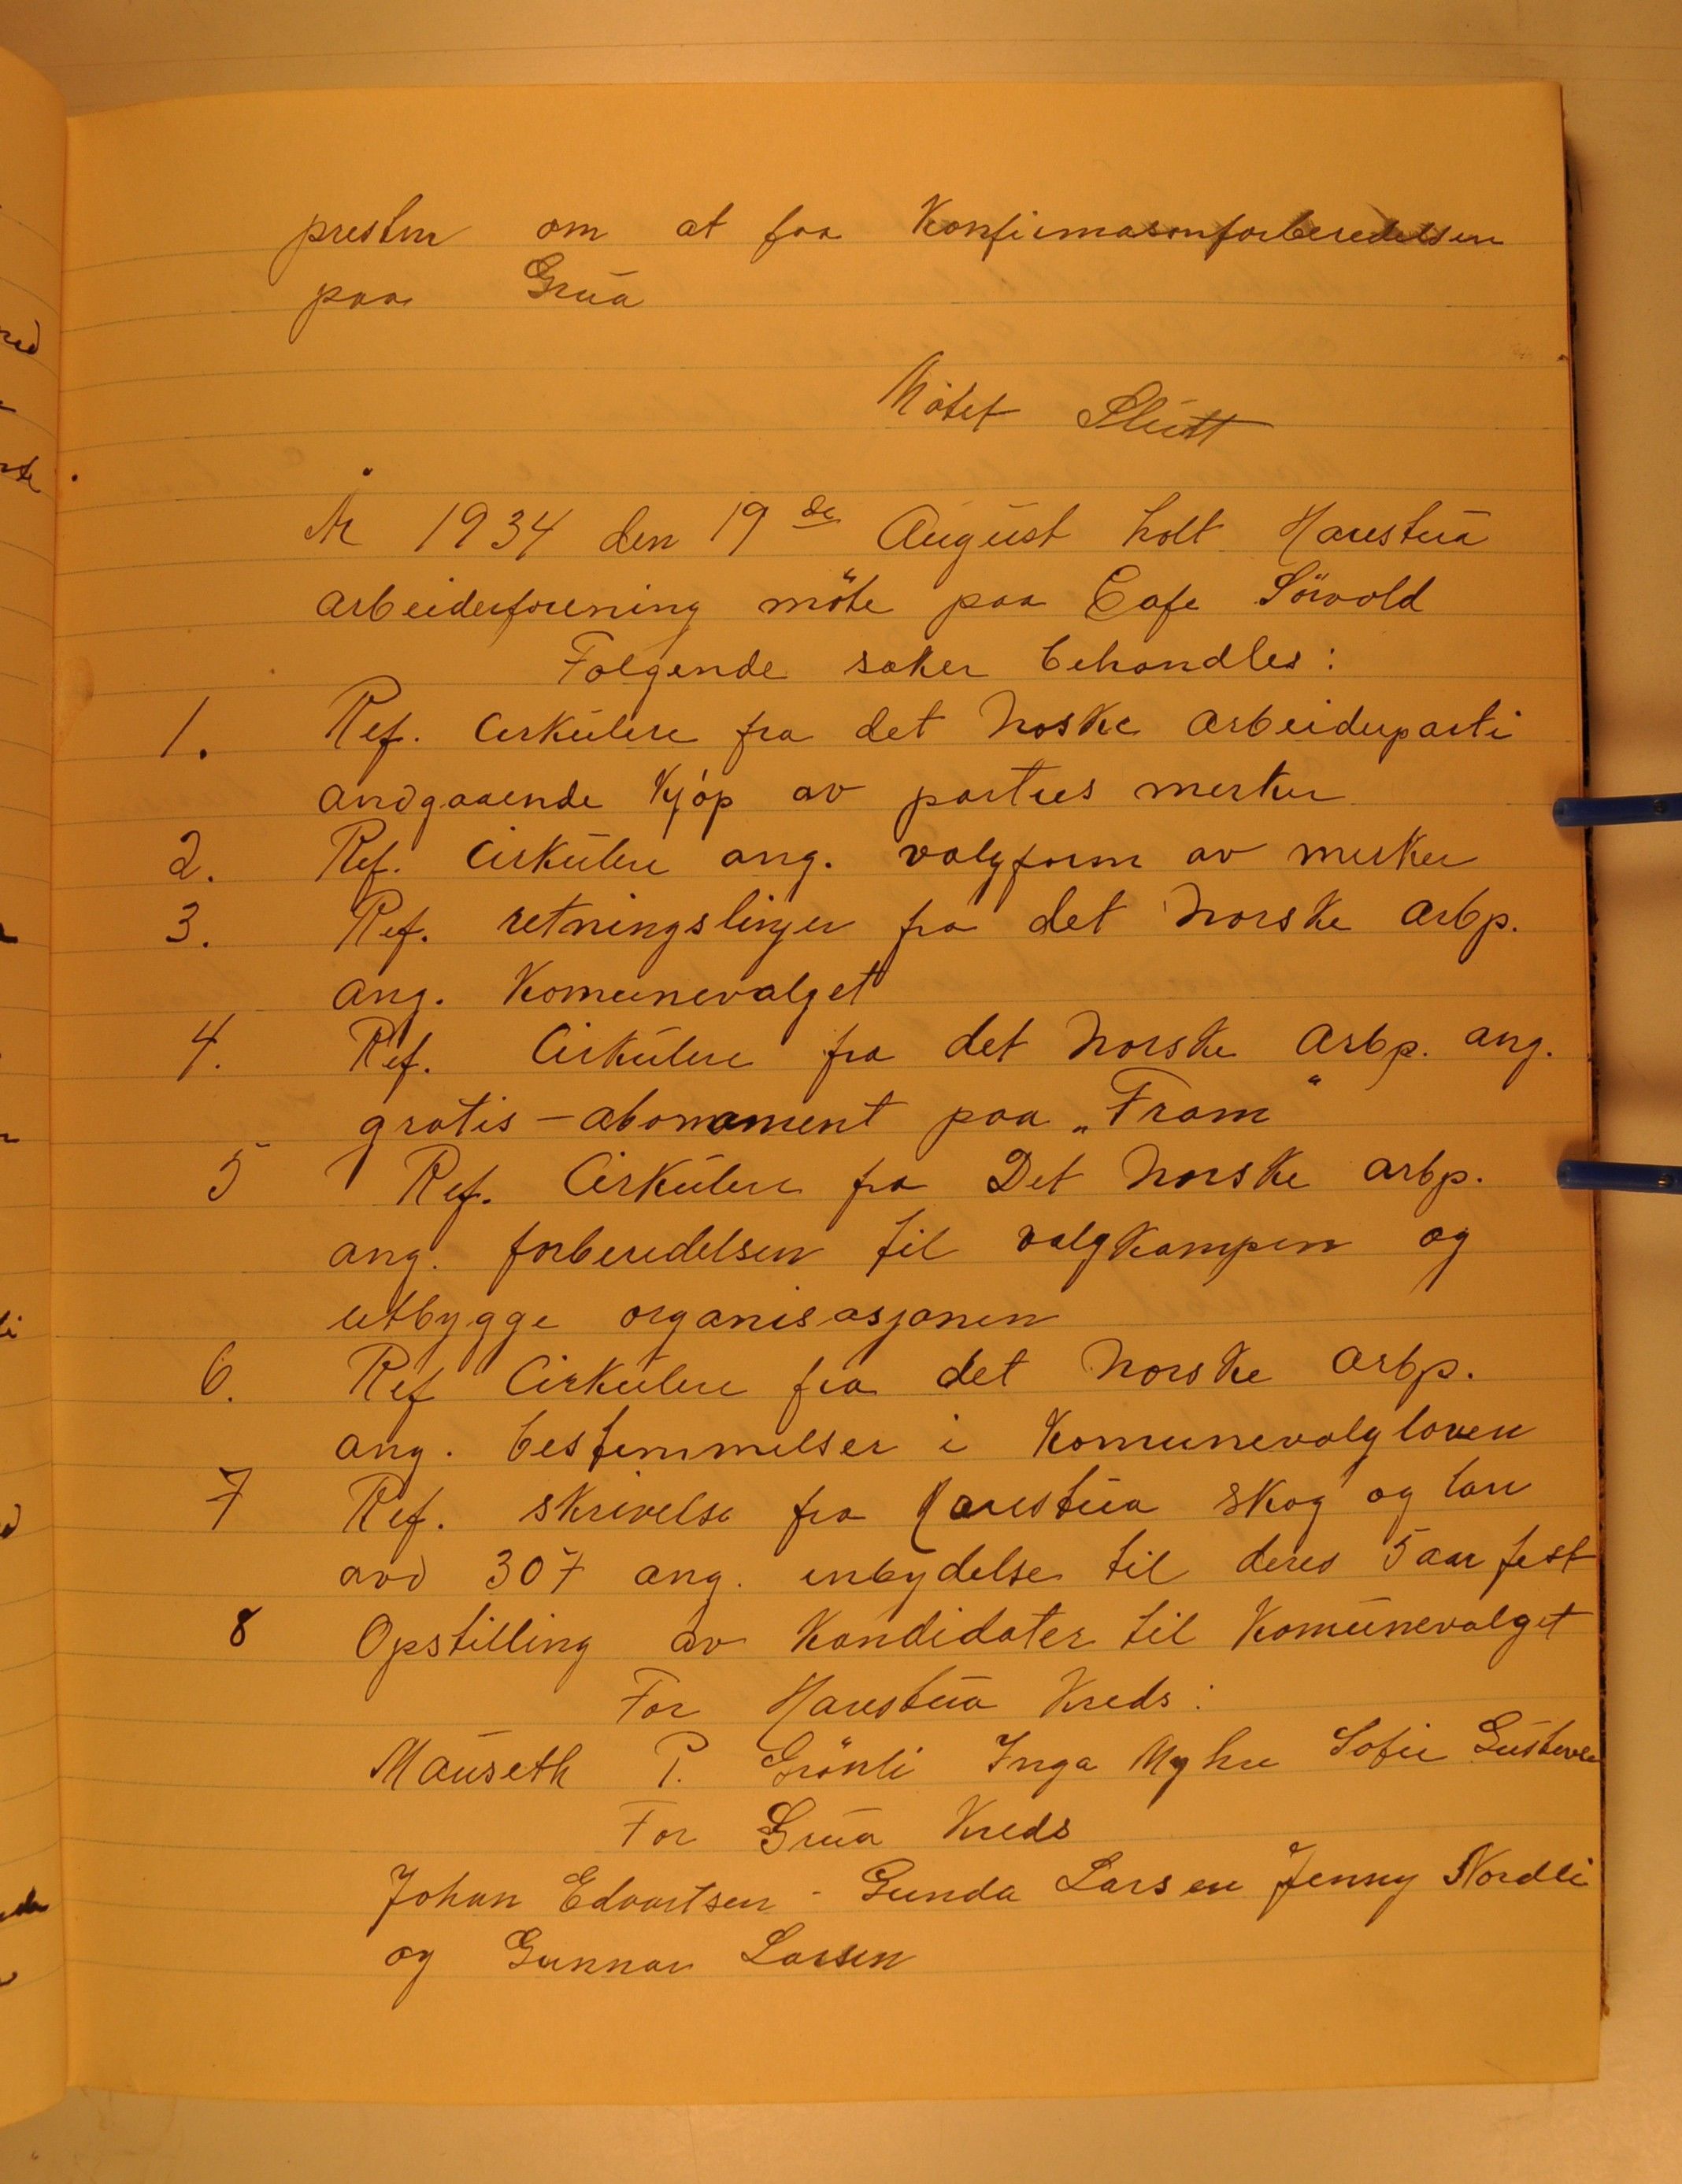 presten om at faa Konfirmasonforberedelsen
paa Grua
Møtet Slutt
År 1934 den 19de August holt Harestua
arbeiderforening møte paa Cafe Sörvold
Følgende saker behandles:
1. Ref. Cirkulere fra det Noske arbeiderparti
andgaaende Kjøp av parties merker
2. Ref. Cirkulere ang. valgform av merker
3. Ref. retningslinjer fra det Norske arbp.
ang. Komunevalget
4. Ref. Cirkulere fra det Norske arbp. ang.
gratis-abonament paa „Fram“
5 Ref. Cirkulere fra Det Norske arbp.
ang. forberedelsen til valgkampen og
utbygge organisasjonen
6. Ref Cirkulere fra det Norske arbp.
ang. bestemmelser i Komunevalgloven
7 Ref. skrivelse fra Harestua skog og lan
avd 307 ang. inbydelse til deres 5 aar fest
8 Opstilling av Kandidater til Komunevalget
For Harestua Kreds:
Mauseth P. Grönli Inga Myhre Sofie
For Grua Kreds
Johan Edvartsen - Gunda Larsen Jenny Nordli
og Gunnar Larsen